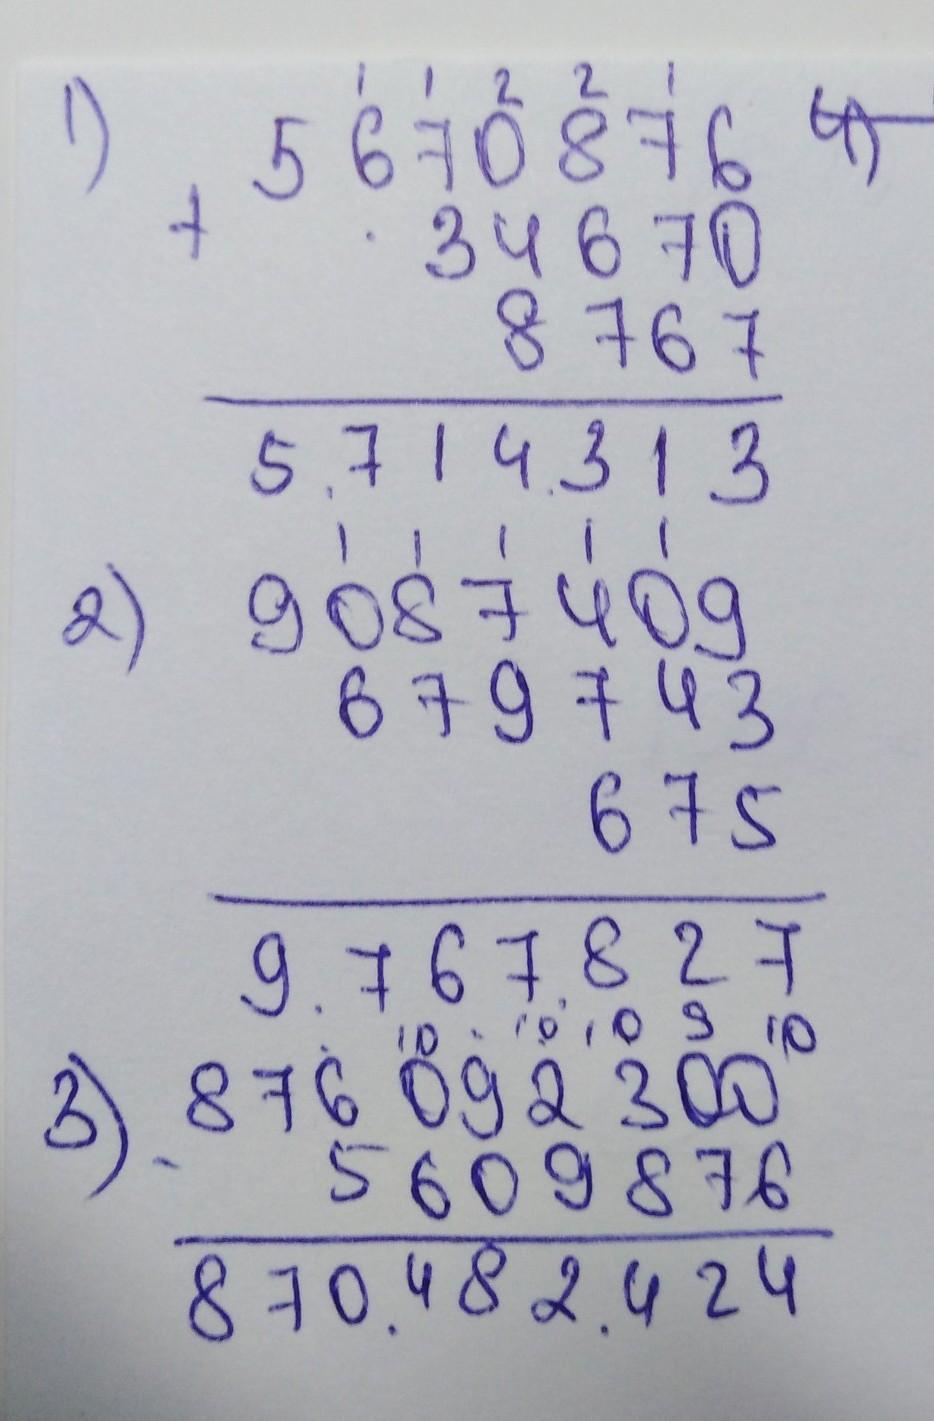 1 1 2 2 1
1) 5670876 4)
+ 34670
8767
5.714.313
1 1 1 1 1
2) 9087409
679743
675
9.767.827
10 10 10 9 10
3) 876092300
- 5609876
870.482.424